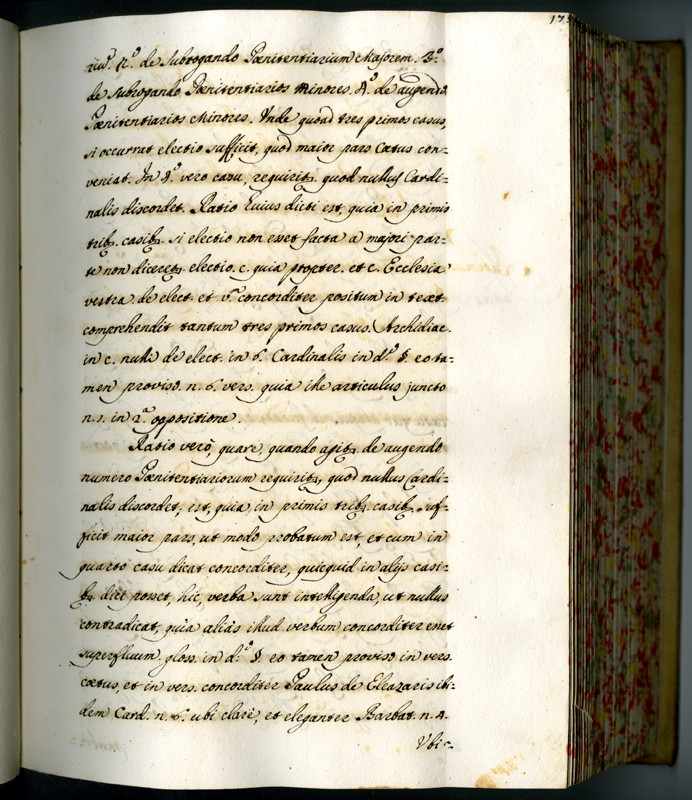 175
rium. 2.º de subrogando Pœnitentiarium Majorem. 3.º
de subrogando Pœnitentiarios Minores. 4.º de augendo
Pœnitentiarios Minores. Vnde quoad tres primos casus,
si occurrat electio sufficit, quod maior pars Cœtus con=
veniat. In 4.º vero casu, requirit.r quod nullus Cardi=
nalis discordet. Ratio huius dicti est, quia in primis
trib.s casib.s si electio non esset facta a majori par=
te non diceret.r electio. c. quia propter. et c. Ecclesia
vestra de elect. et v.m concorditer positum in text.
comprehendit tantum tres primos casus. Archidiac.
in c. nulli de elect. in 6. Cardinalis in d.º §. eo ta=
men proviso. n. 6. vers. quia ille articulus juncto
n. 1. in 2.ª oppositione.
Ratio verò quare, quando agit.r de augendo
numero Pœnitentiariorum requirit.r, quod nullus Cardi=
nalis discordet, est, quia in primis trib.s casib.s suf=
ficit maior pars, ut modo probatum est, et cum in
quarto casu dicat concorditer, quicquid in alijs casi=
b.s dici posset, hic, verba sunt intelligenda, ut nullus
contradicat, quia aliàs illud verbum concorditer esset
superfluum, gloss. in d.º §. eo tamen proviso in vers.
cœtus, et in vers. concorditer Paulus de Eleazaris ibi=
dem Card. n. 6. ubi clarè, et eleganter Barbat. n. 4.
Vbi=